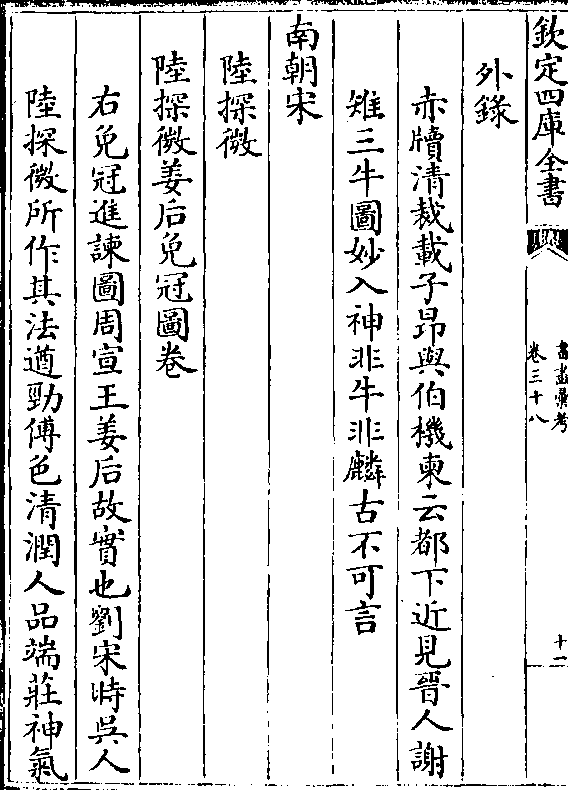 欽定四庫全書
書畫彙考
卷三十八
十一
外錄
赤牘清裁載子昂與伯機柬云都下近見晉人謝
雉三牛圖妙入神非牛非麟古不可言
南朝宋
陸探微
陸探微姜后免冠圖卷
右免冠進諫圖周宣王姜后故實也劉宋時吳人
陸探微所作其法遒勁傅色清潤人品端莊神氣